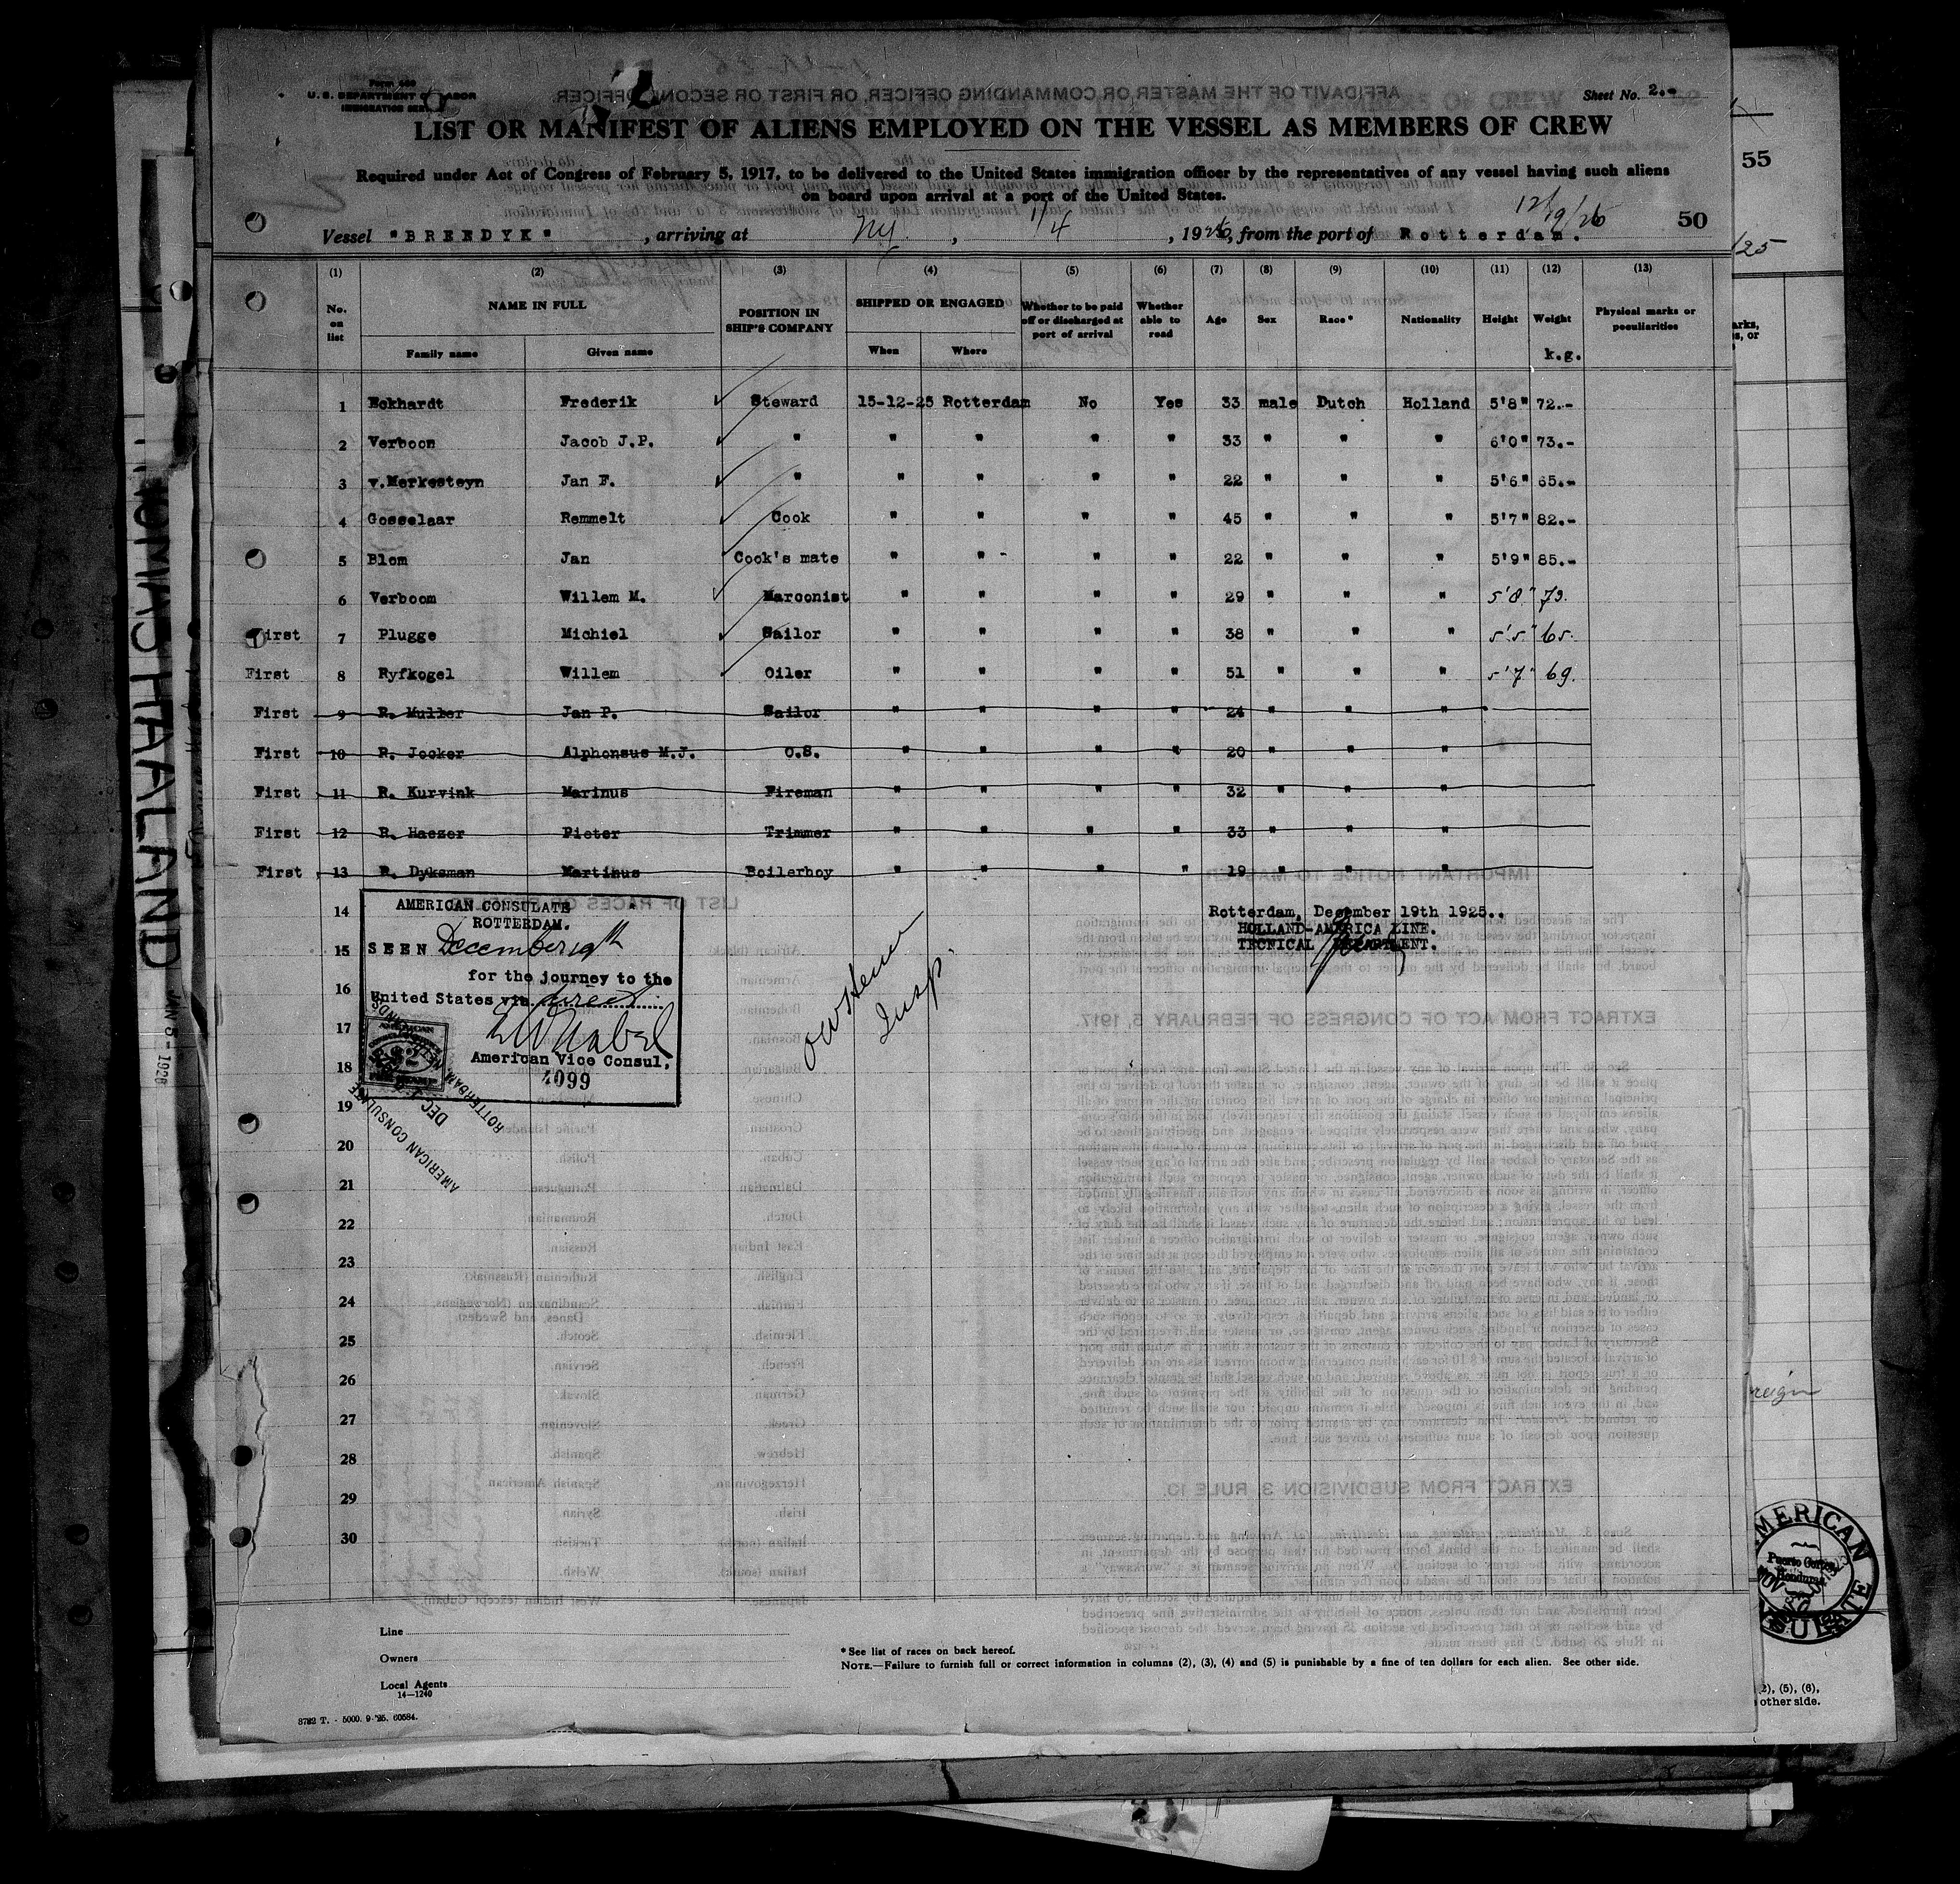 Form 689
U. S. DEPARTMENT OF LABOR
IMMIGRATION SERVICE
Sheet No. 2.-
LIST OR MANIFEST OF ALIENS EMPLOYED ON THE VESSEL AS MEMBERS OF CREW
Required under Act of Congress of February 5, 1917, to be delivered to the United States immigration officer by the representatives of any vessel having such aliens
on board upon arrival at a port of the United States.
12/19/25
50
Vessel "BREEDYK", arriving at NY, 1/4, 1926, from the port of Rotterdam.
(1) (2) (3) (4) (5) (6) (7) (8) (9) (10) (11) (12) (13)
No. on list NAME IN FULL POSITION IN SHIP'S COMPANY SHIPPED OR ENGAGED Whether to be paid off or discharged at port of arrival Whether able to read Age Sex Race* Nationality Height Weight Physical marks or peculiarities
Family name Given name When Where k.g.
1 Eckhardt Frederik Steward 15-12-25 Rotterdam No Yes 33 male Dutch Holland 5'8" 72.-
2 Verboon Jacob J.P. " " " " " 33 " " " 6'0" 73.-
3 v.Merkesteyn Jan F. " " " " " 22 " " " 5'6" 65.-
4 Gosselaar Remmelt Cook " " " " 45 " " " 5'7" 82.-
5 Blom Jan Cook's mate " " " " 22 " " " 5'9" 85.-
6 Verboom Willem M. Marconist " " " " 29 " " " 5'8" 73.
First 7 Plugge Michiel Sailor " " " " 38 " " " 5'5" 65.
First 8 Ryfkogel Willem Oiler " " " " 51 " " " 5'7" 69.
First 9 R. Muller Jan P. Sailor " " " " 24 " " "
First 10 R. Jocker Alphonsus M.J. O.S. " " " " 20 " " "
First 11 R. Kurvink Marinus Fireman " " " " 32 " " "
First 12 R. Haezer Pieter Trimmer " " " " 33 " " "
First 13 R. Dyksman Martinus Boilerboy " " " " 19 " " "
14
15
16
17
18
19
20
21
22
23
24
25
26
27
28
29
30
AMERICAN CONSULATE
ROTTERDAM.
SEEN December 19th
for the journey to the
United States via direct
American Vice Consul.
4099
AMERICAN CONSULATE
ROTTERDAM, NETHERLANDS
DEC
Rotterdam, December 19th 1925..
HOLLAND-AMERICA LINE.
TECNICAL DEPARTMENT.
Insp.
Line
Owners
Local Agents
14—1240
*See list of races on back hereof.
NOTE.—Failure to furnish full or correct information in columns (2), (3), (4) and (5) is punishable by a fine of ten dollars for each alien. See other side.
3782 T. - 5000. 9-'25. 60584.
55
/25
arks,
s, or
reign
AMERICAN
Puerto Cortes
Honduras
(2), (5), (6),
other side.
JAN 5 - 1926